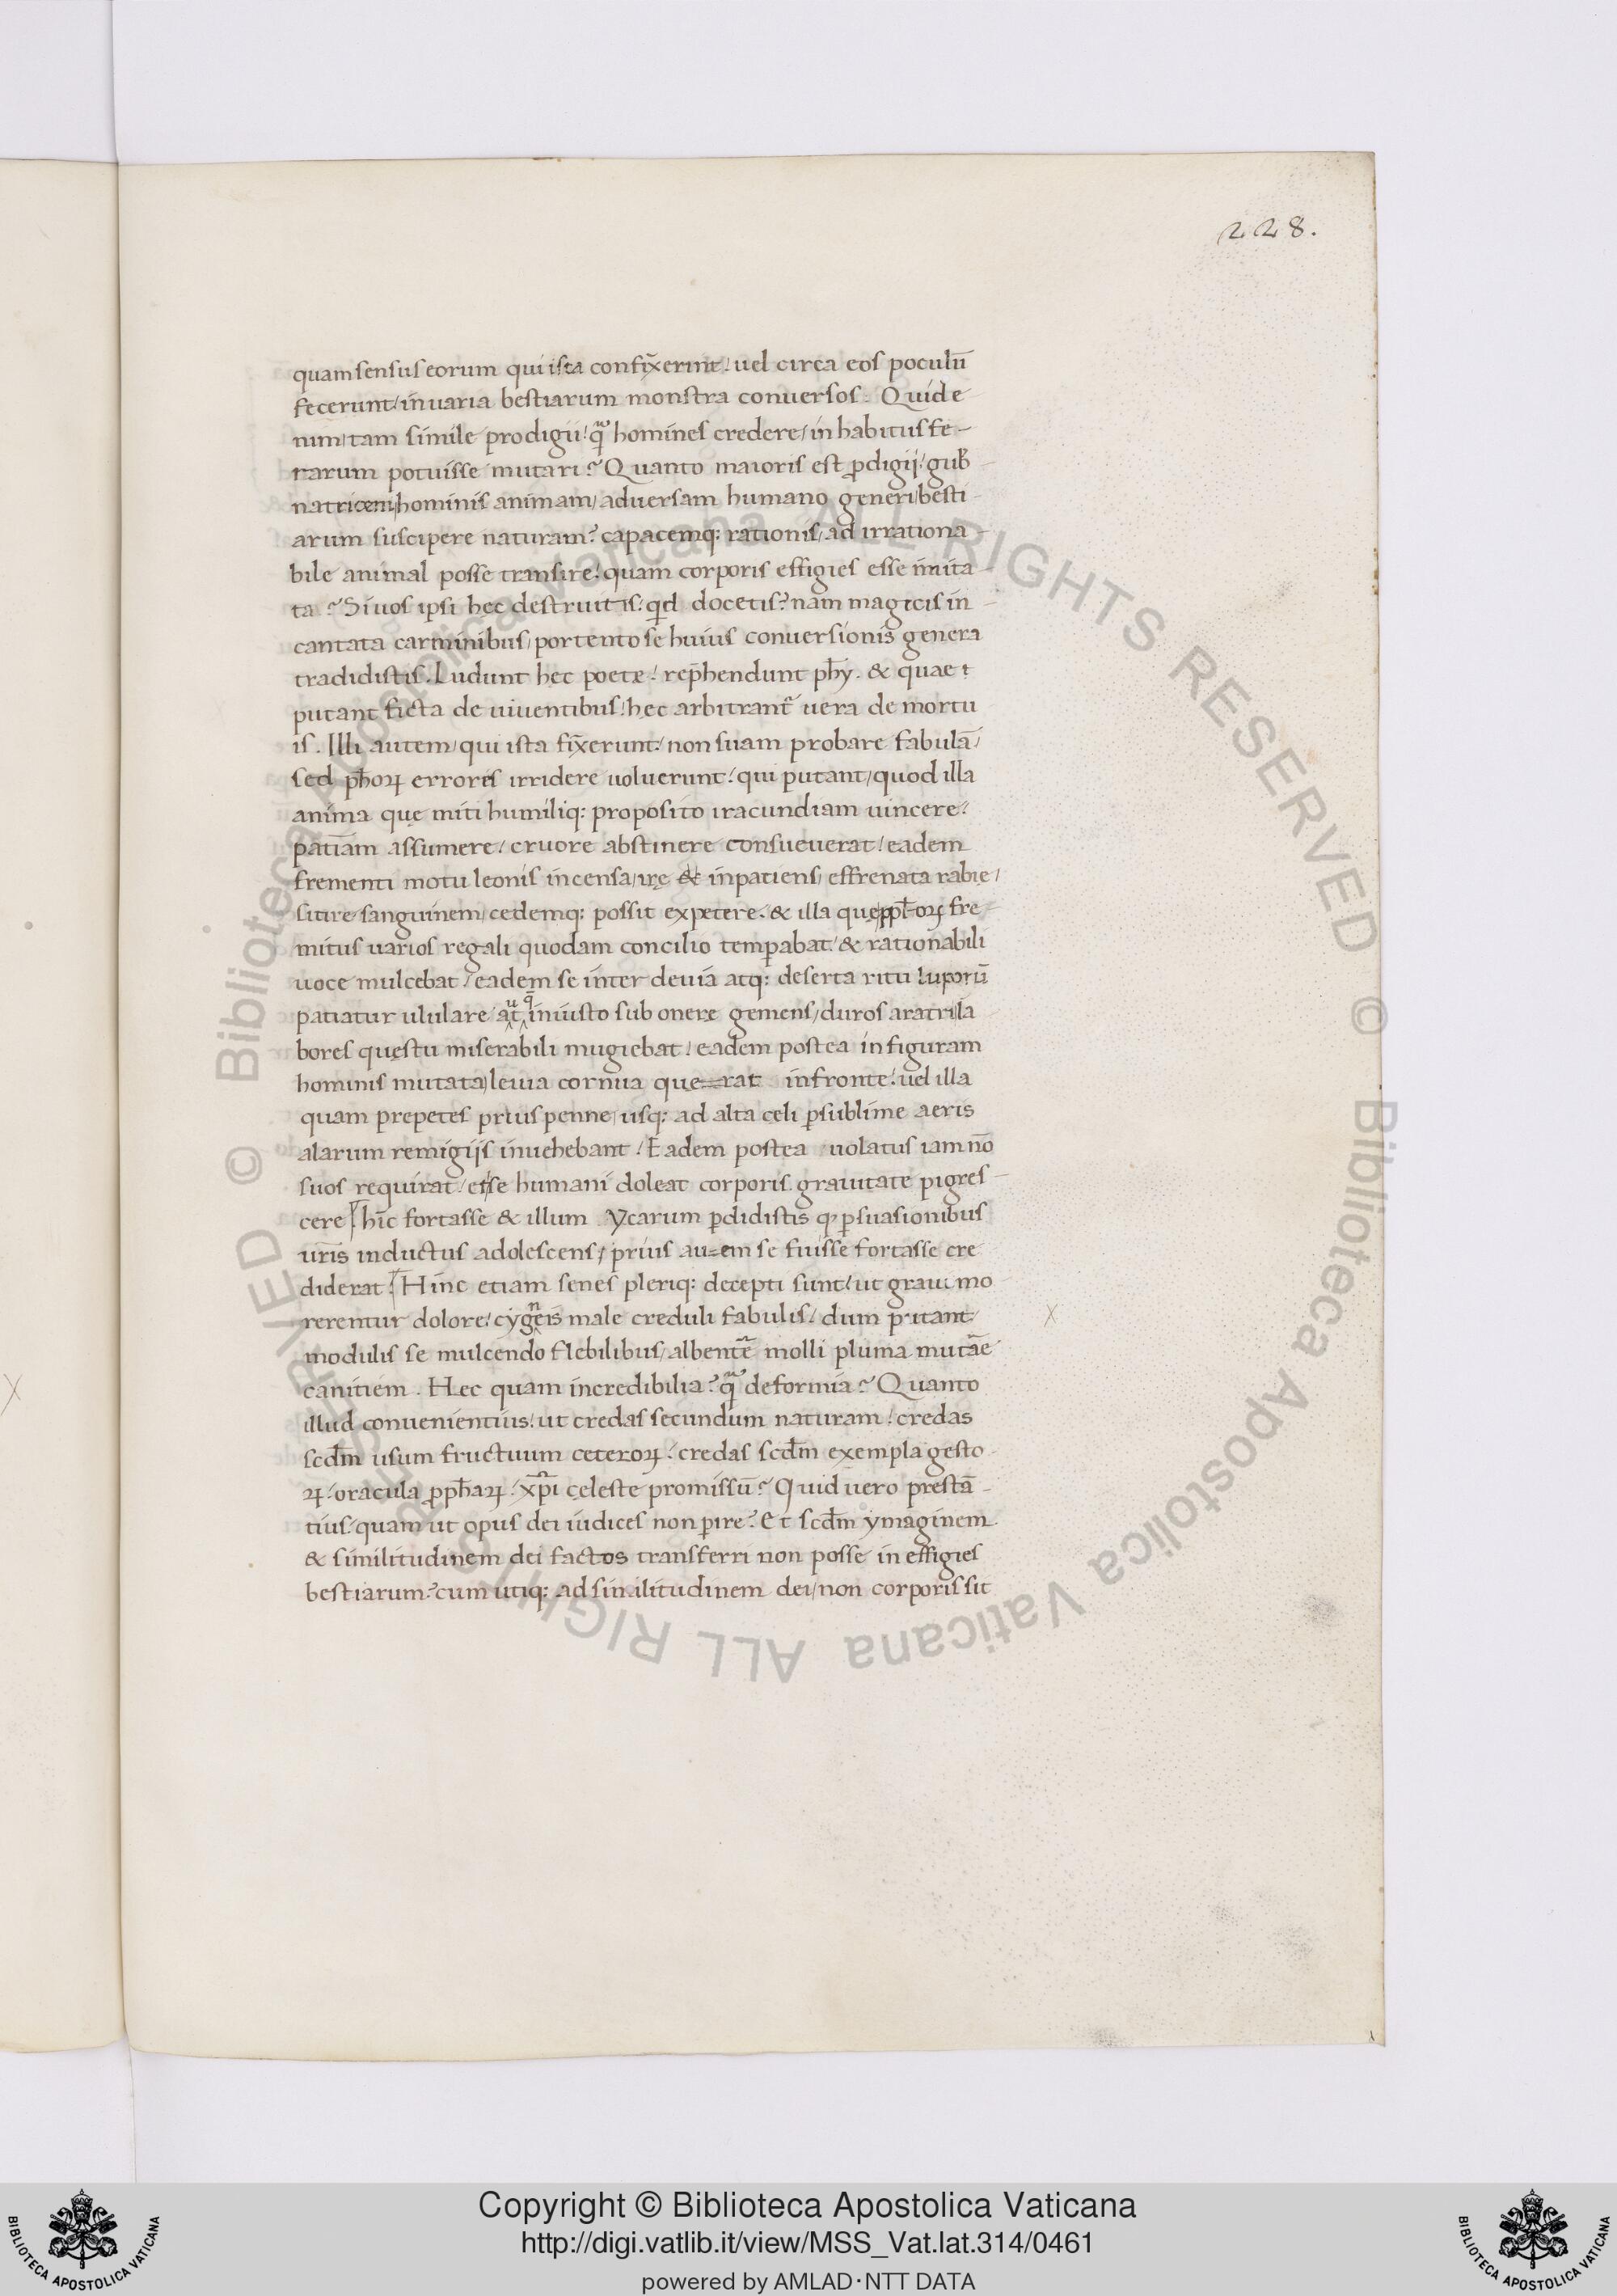 228.
quam sensus eorum qui ista confixerint / uel circa eos poculū
fecerunt / in uaria bestiarum monstra conuersos. Quid e
nim / tam simile prodigii / q̃ꝫ homines credere / in habitus fe-
rarum potuisse mutari? Quanto maioris est ꝓdigij / gub̃
natricem hominis animam / aduersam humano generi besti-
arum suscipere naturam? capacemq: rationis / ad irrationa-
bile animal posse transire / quam corporis effigies esse muta-
ta? Si uos ipsi hec destruitis / qd docetis? nam magicis in-
cantata carminibus / portento se huius conuersionis genera
tradidistis. Ludunt hec poetæ / rep̄hendunt ph̄y. & quae t
putant ficta de uiuentibus / hęc arbitrant̃ uera de mortu
is. Illi autem / qui ista fix̄erunt / non suam probare fabulā /
sed ph̄oꝝ erroris irridere uoluerunt / qui putant / quod illa
anima quę miti humiliq: proposito iracundiam uincere /
patīam assumere / cruore abstinere consueuerat / eadem
frementi motu leonis incensa / irę & inpatiens / effrenata rabie /
sitire sanguinem / cedemq: possit expetere. & illa quę ppl̄oꝝ fre-
mitus uarios regali quodam concilio temꝑabat / & rationabili
uoce mulcebat / eadem se inter deuia atq: deserta ritu luporū
patiatur ululare / aut q̄ iniusto sub onere gemens / duros aratri la
bores quęstu miserabili mugiebat / eadem postea in figuram
hominis mutata) leuia cornua que=rat in fronte / uel illa
quam prepetes prius penne / usq: ad alta celi ꝑ sublime aeris
alarum remigijs inuehebant / Eadem postea uolatus iam nō
suos requirat / et se humani doleat corporis grauitate pigres-
cere hīc fortasse & illum ycarum ꝑdidistis qꝫ ꝑsuasionibus
ur̄is inductus adolescens / prius au=em se fuisse fortasse cre
diderat. Hinc etiam senes pleriq: decepti sunt / ut graui mo
rerentur dolore / cygneis male creduli fabulis / dum putant
modulis se mulcendo flebilibus / albentē molli pluma mutāe
canitiem. Hec quam incredibilia? q̃ꝫ deformia? Quanto
illud conuenientius / ut credas secundum naturam / credas
scd̄m usum fructuum ceteroꝝ / credas scd̄m exempla gesto
ꝝ / oracula ꝓph̄aꝝ / xp̄i celeste promissū? Quid uero prestā-
tius / quam ut opus dei iudices non ꝑire? Et scd̄m ymaginem
& similitudinem dei factos transferri non posse in effigies
bestiarum? cum utiq: ad similitudinem dei / non corporis sit
Copyright © Biblioteca Apostolica Vaticana
http://digi.vatlib.it/view/MSS_Vat.lat.314/0461
powered by AMLAD·NTT DATA